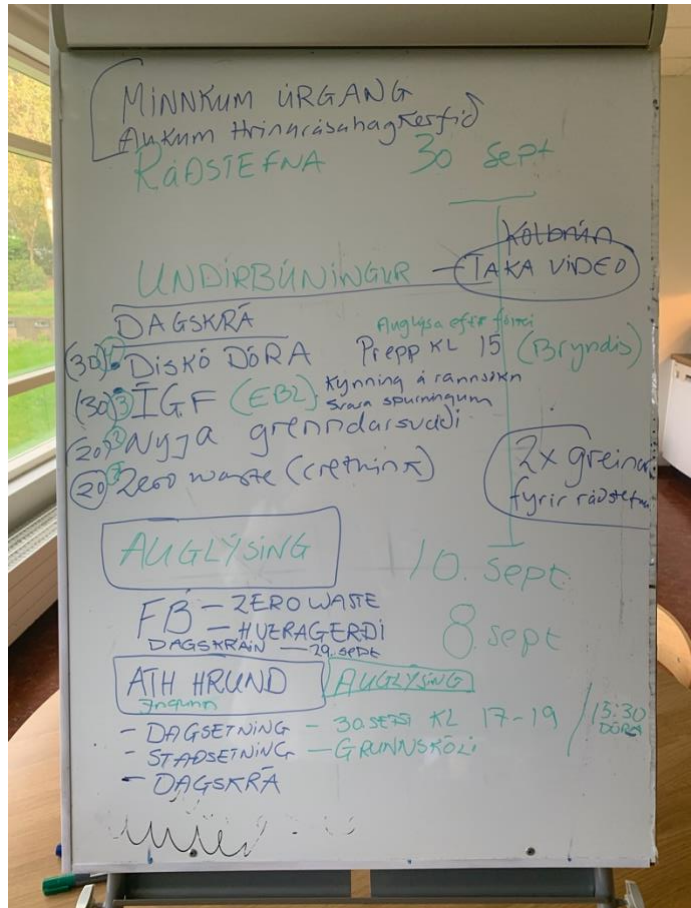 MINNKUM ÚRGANG
AUKUM Hringrásahagkerfið
RÁÐSTEFNA 30 Sept
Kolbrún
UNDIRBÚNINGUR - TAKA VIDEO
DAGSKRÁ
Auglýsa eftir fönci
(30) DISKÓ DÓRA Prepp KL 15 (Bryndís)
(30) 3 ÍGF (EBL) Kynning á rannsókn
Svara spurningum
(20) Nyja grenndarsvæði
(20) Zero waste
2x greinar
fyrir ráðstefnu
AUGLÝSING 10. Sept
FB - ZERO WASTE
- HVERAGERÐI 8. sept
DAGSKRÁIN - 29. sept
ATH HRUND AUGLÝSING
Ingunn
- DAGSETNING - 30 SEPT KL 17-19 / 15:30
DÓRA
- STAÐSETNING - GRUNNSKÓLI
- DAGSKRÁ